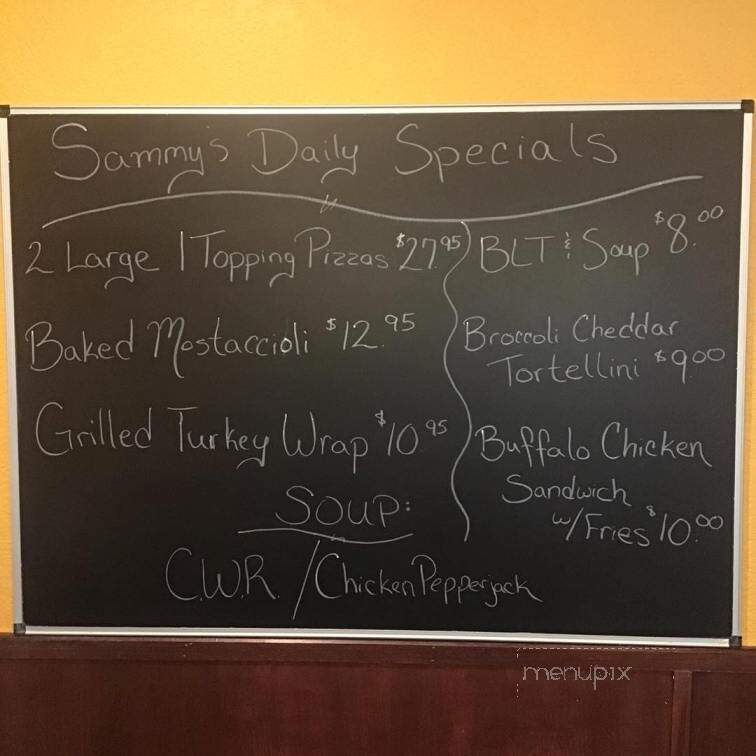 Sammy's Daily Specials
2 Large 1 Topping Pizzas $27.95
Baked Mostaccioli $12.95
Grilled Turkey Wrap $10.95
BLT & Soup $8.00
Broccoli Cheddar
Tortellini $9.00
Buffalo Chicken
Sandwich
w/Fries $10.00
SOUP:
C.W.R. / Chicken Pepperjack
menupix